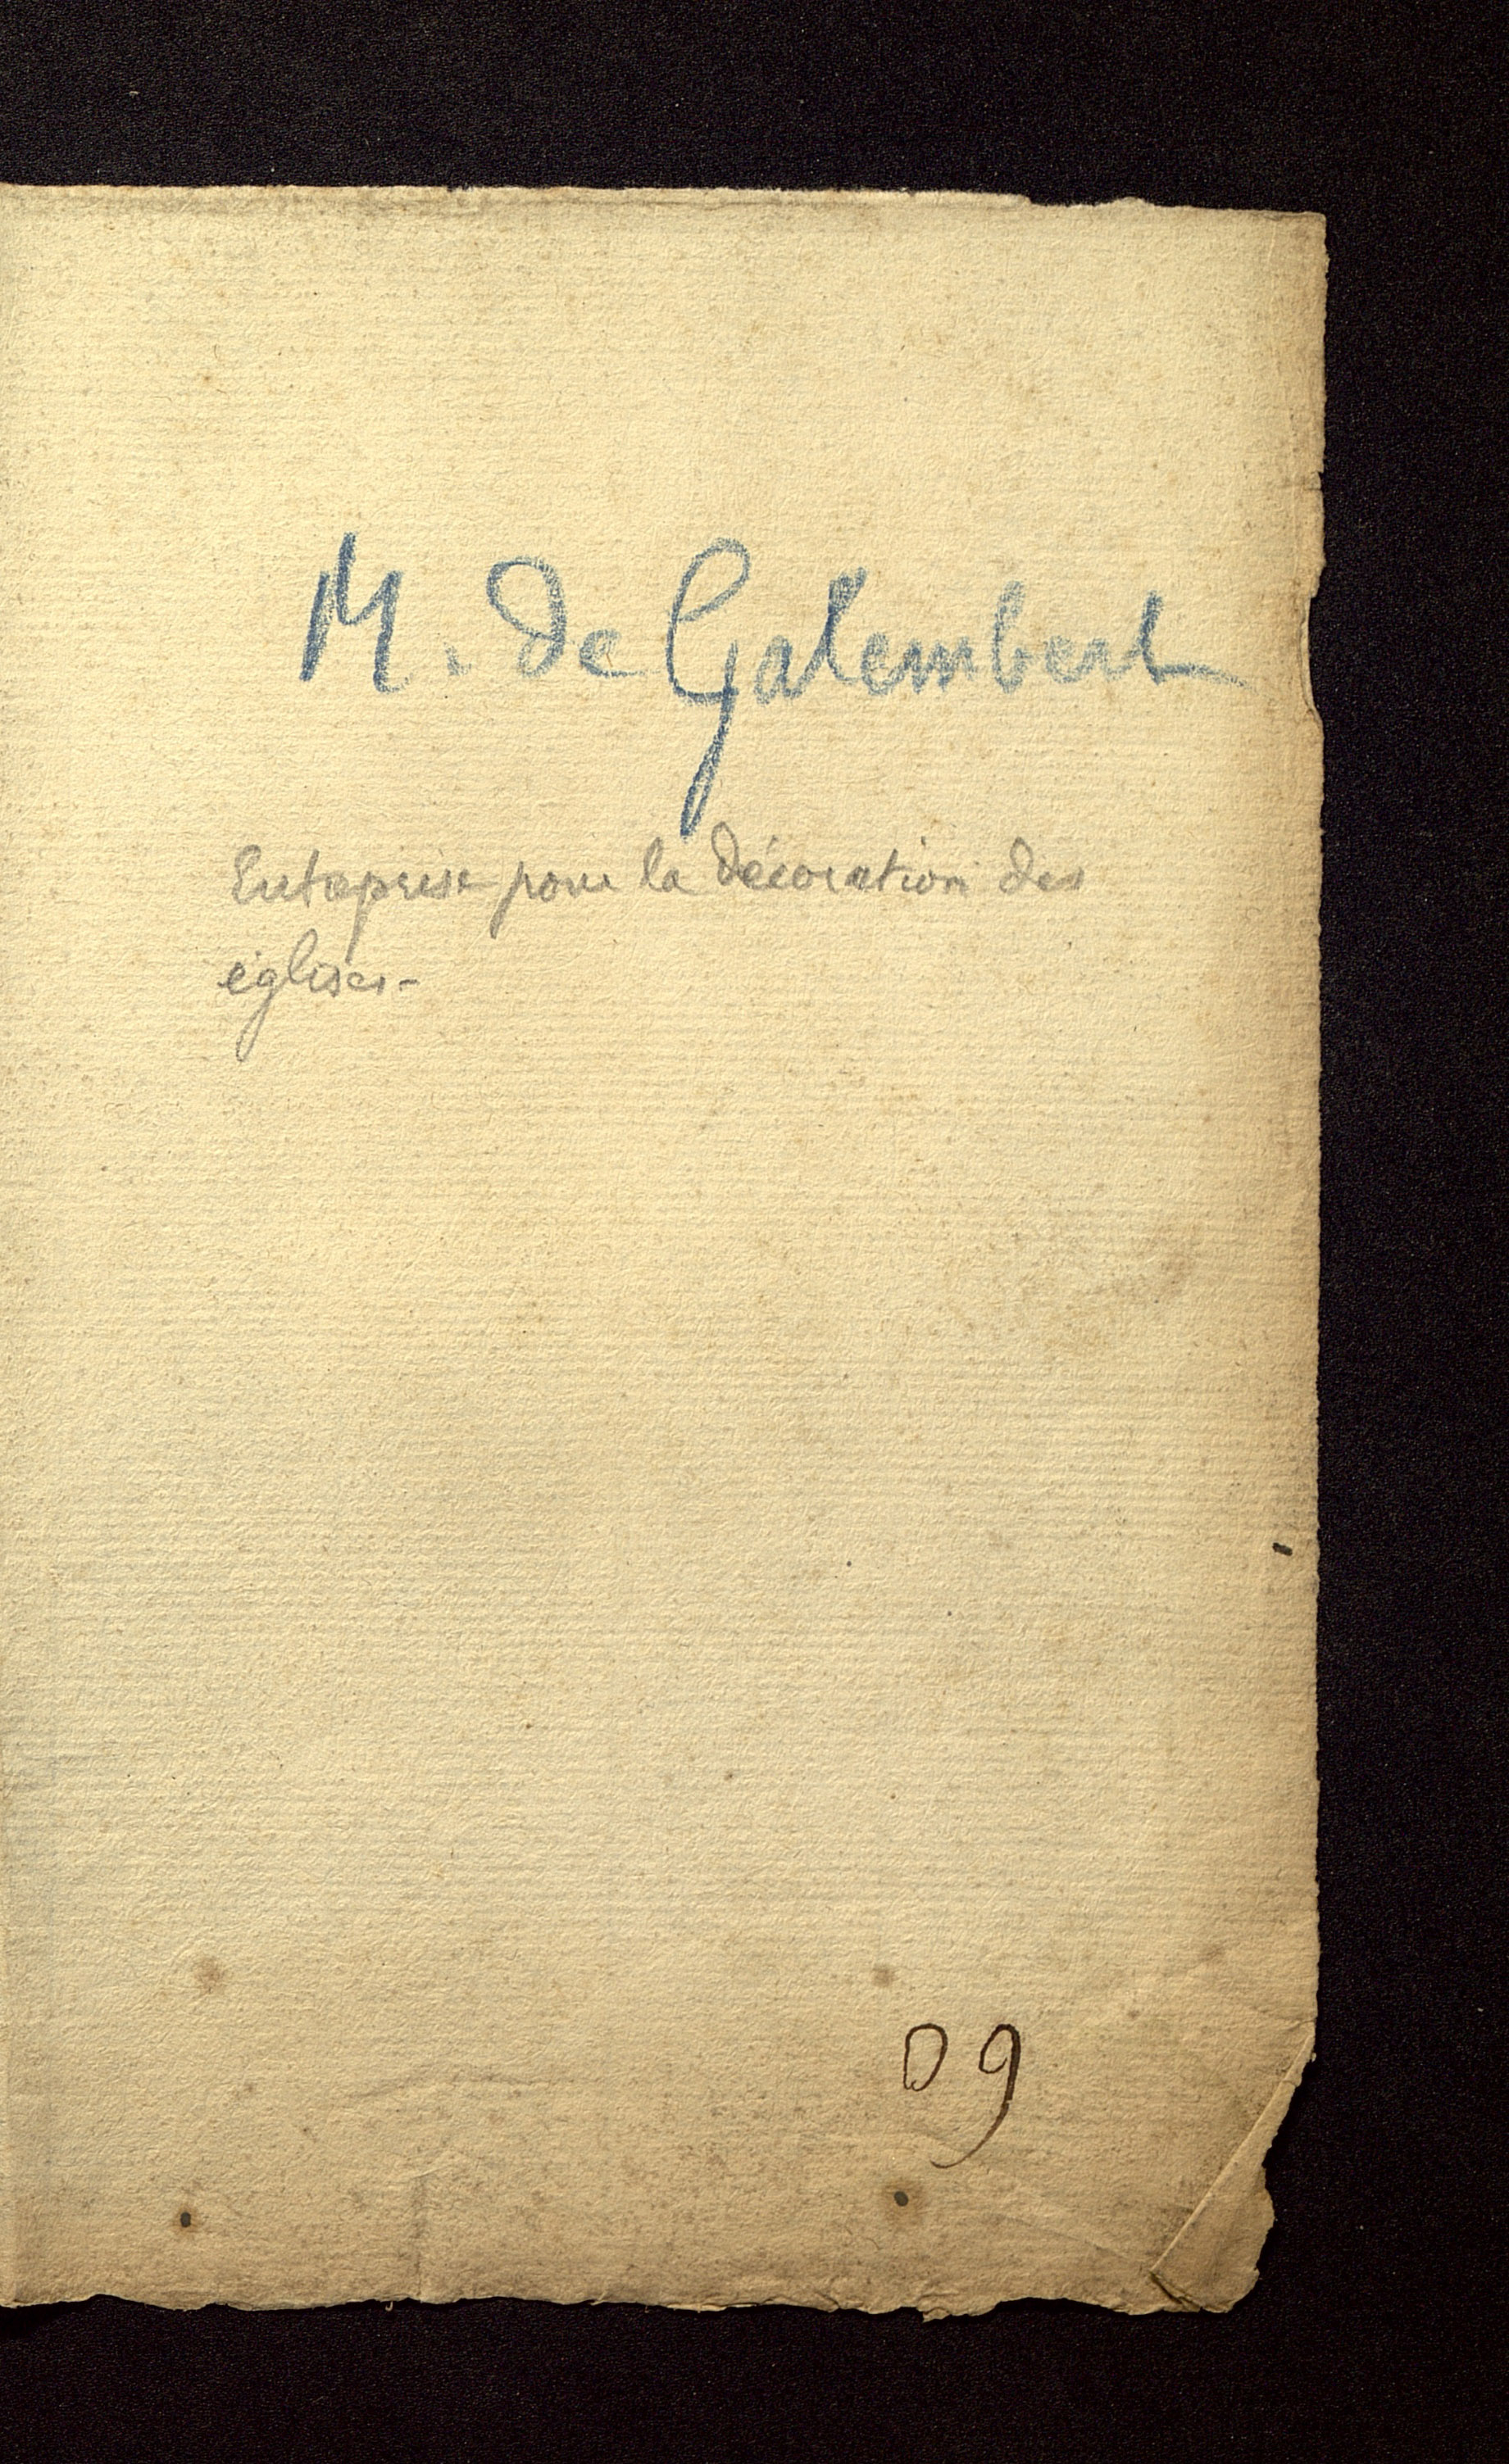 M. de Galembert
Entreprise pour la décoration des
églises-
09